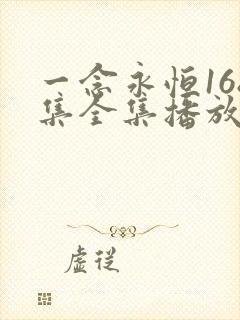 一念永恒16
集全集播放
虚从